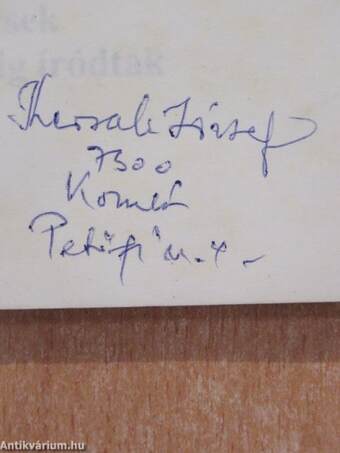 sek
lg íródtak
Kersák József
7300
Komló
Petőfi u. 4.
Antikvárium.hu